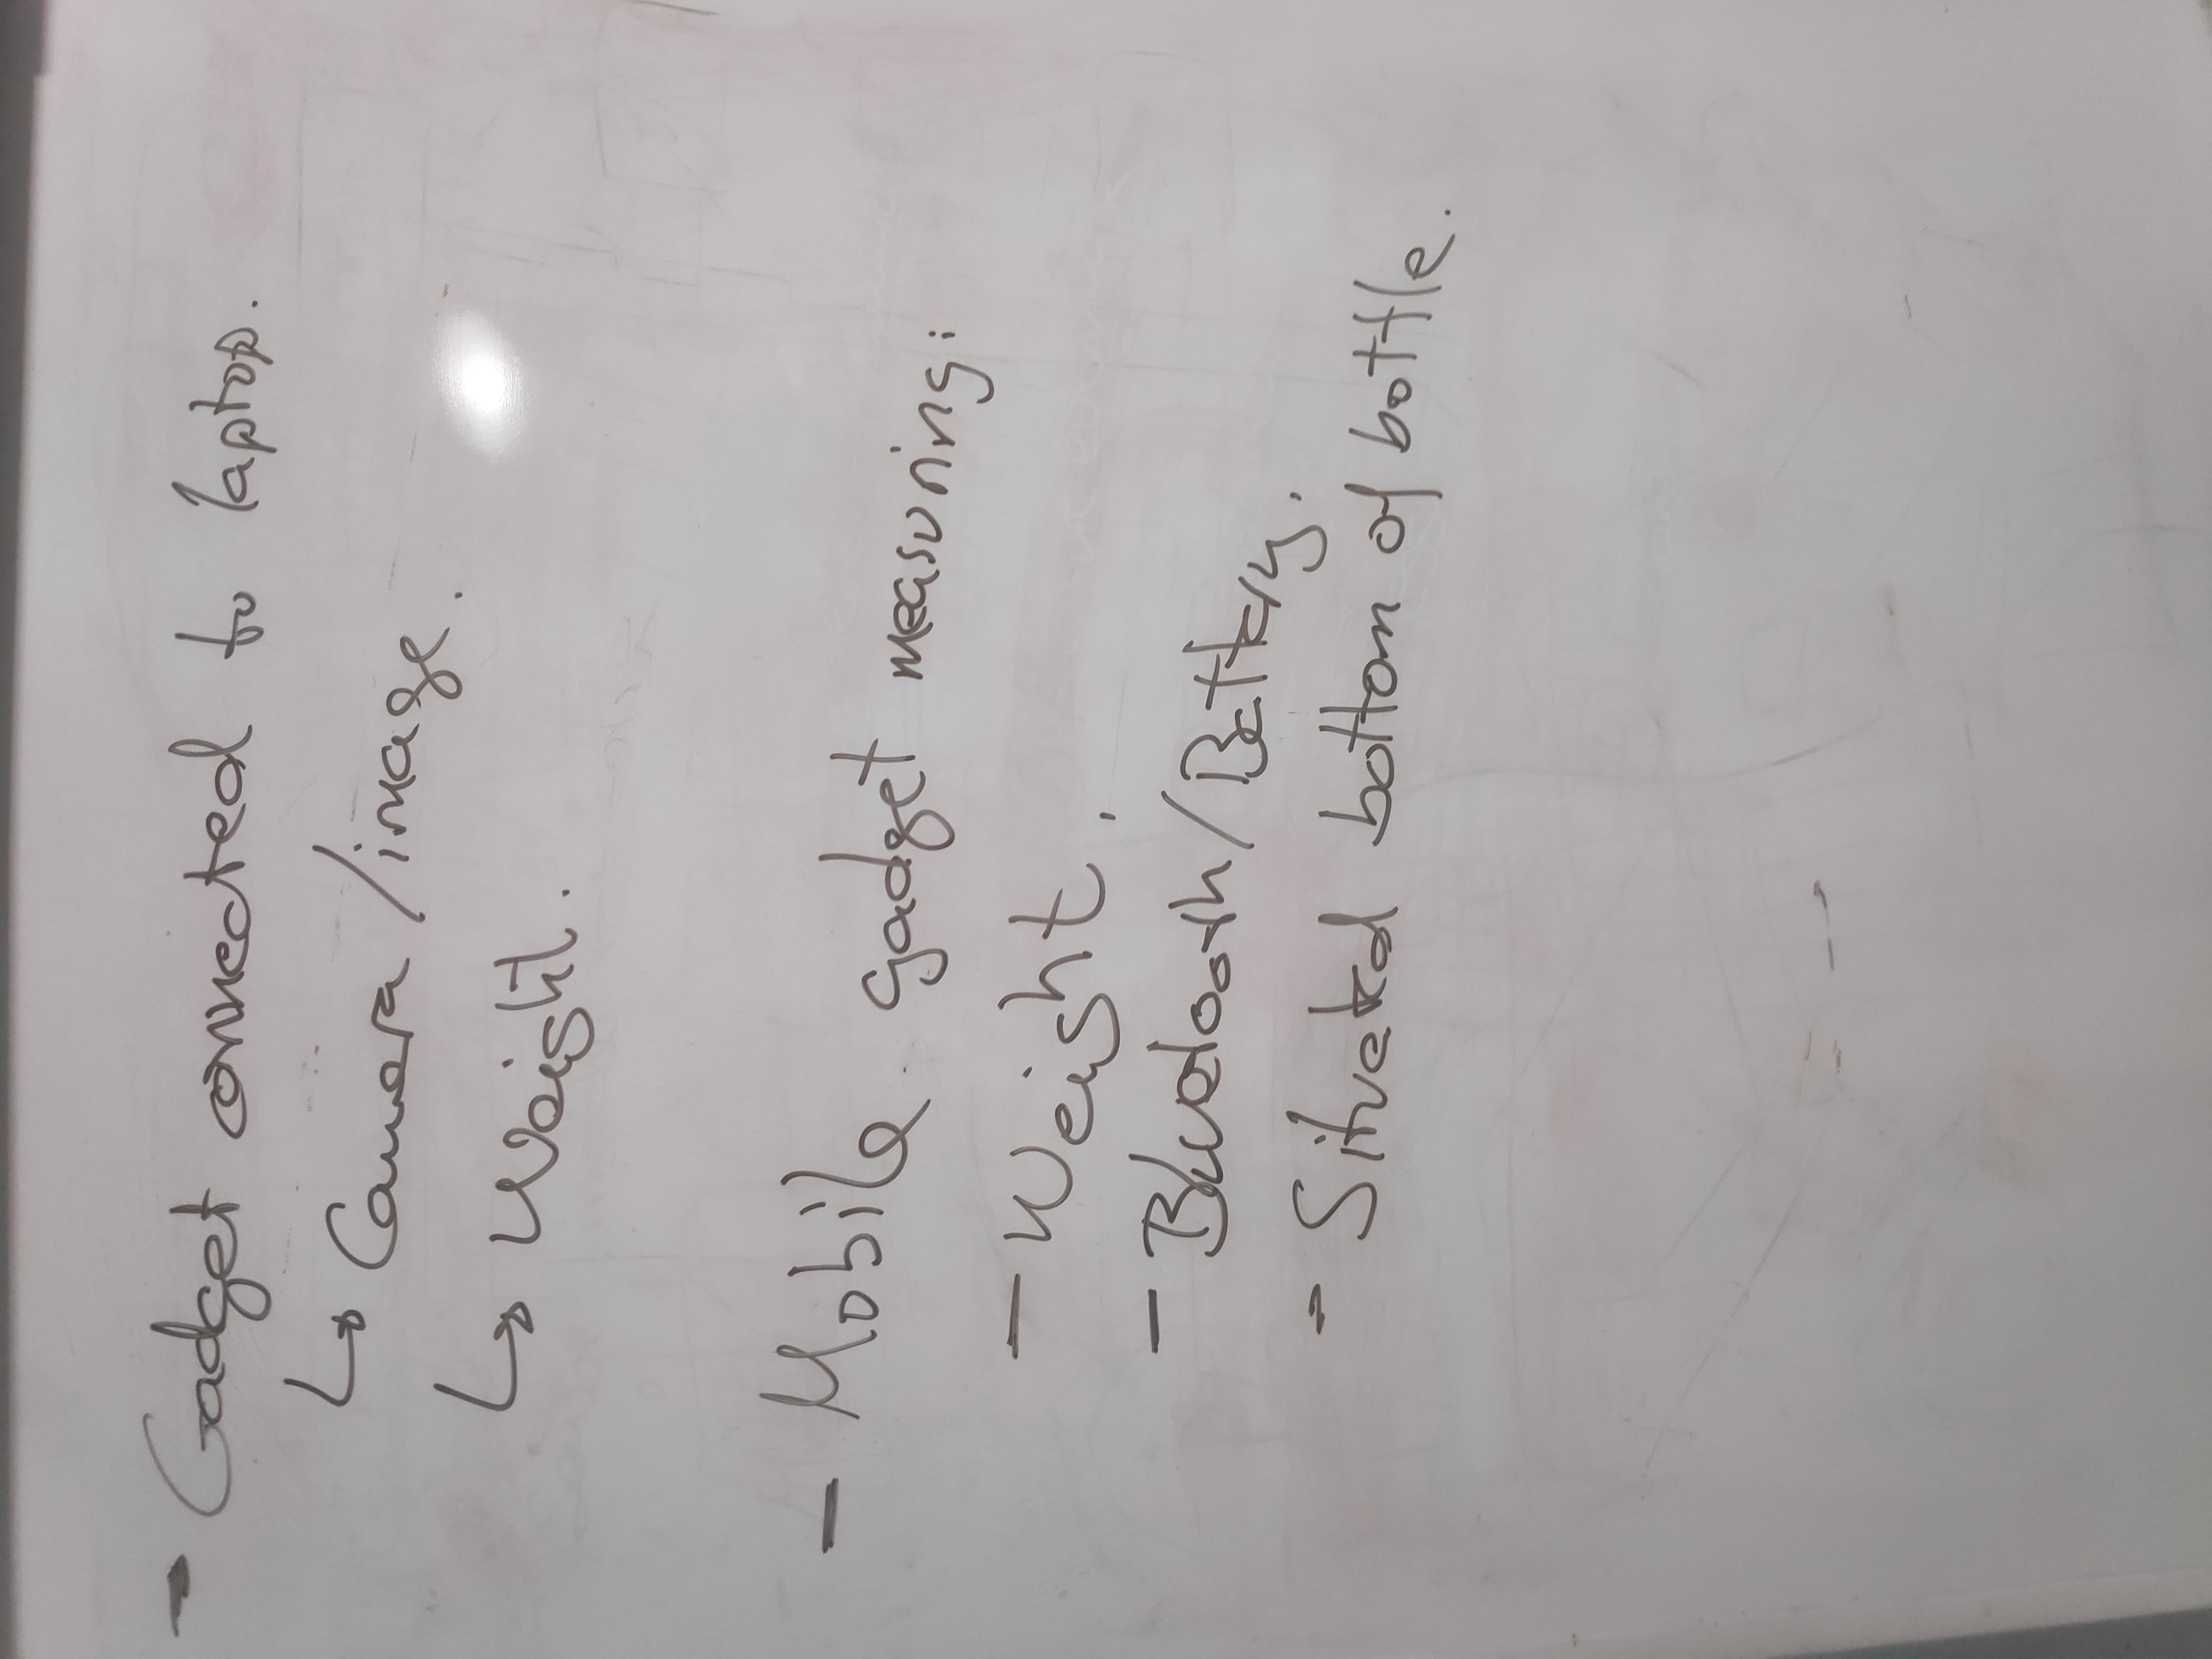 - Gadget connected to laptop.
↳ Camera / image.
↳ Weight.
- Mobile gadget measuring:
- Weight.
- Bluetooth / Battery.
- Situated bottom of bottle.